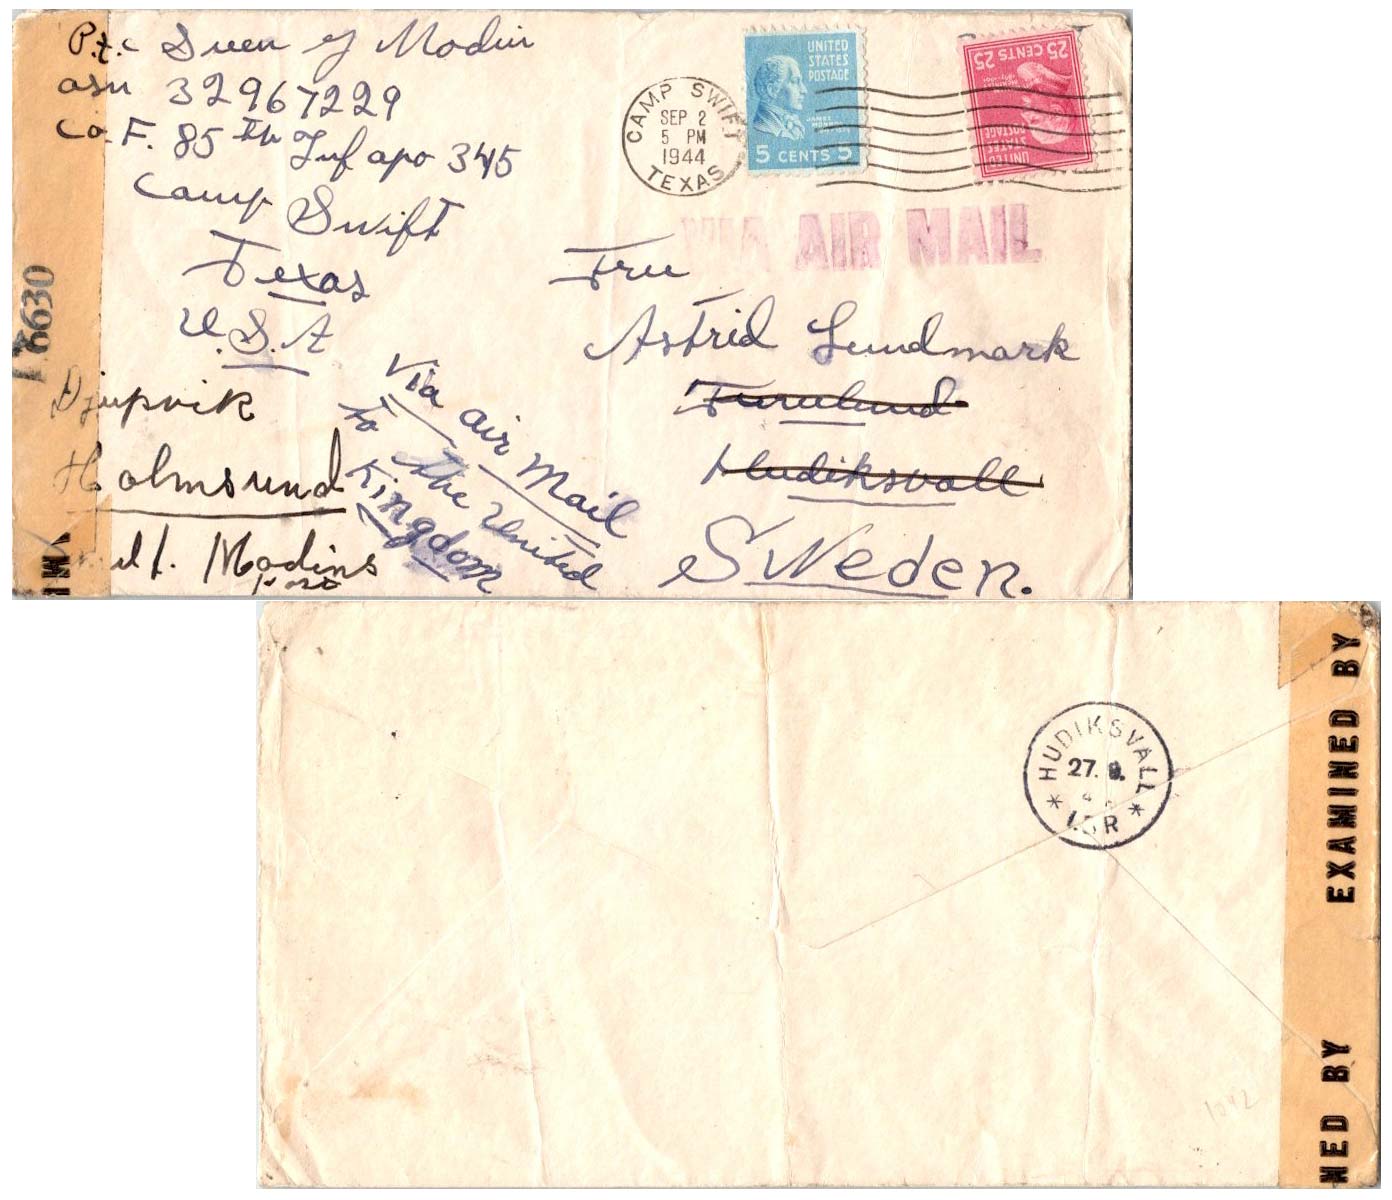 Pfc Sven G Modin
asn 32967229
Co. F. 85th Inf apo 345
Camp Swift
Texas
U.S.A
CAMP SWIFT
SEP 2
5 PM
1944
TEXAS
UNITED
STATES
POSTAGE
JAMES
MONROE
5 CENTS 5
25 CENTS 25
UNITED
STATES
POSTAGE
VIA AIR MAIL
Fru
Astrid Lundmark
Furulund
Hudiksvall
Sweden.
Via air Mail
to the United
Kingdom
Djupvik
Holmsund
Modins
6630
HUDIKSVALL
27. 9.
LBR
EXAMINED BY
NED BY
1042